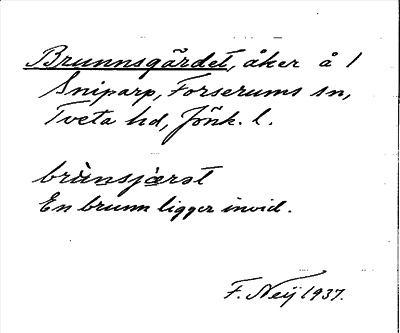 Brunnsgärdet, åker å 1
Sniparp, Forserums sn,
Tveta hd, Jönk. l.
brùnsjærst
En brunn ligger invid.
F. Neij 1937.